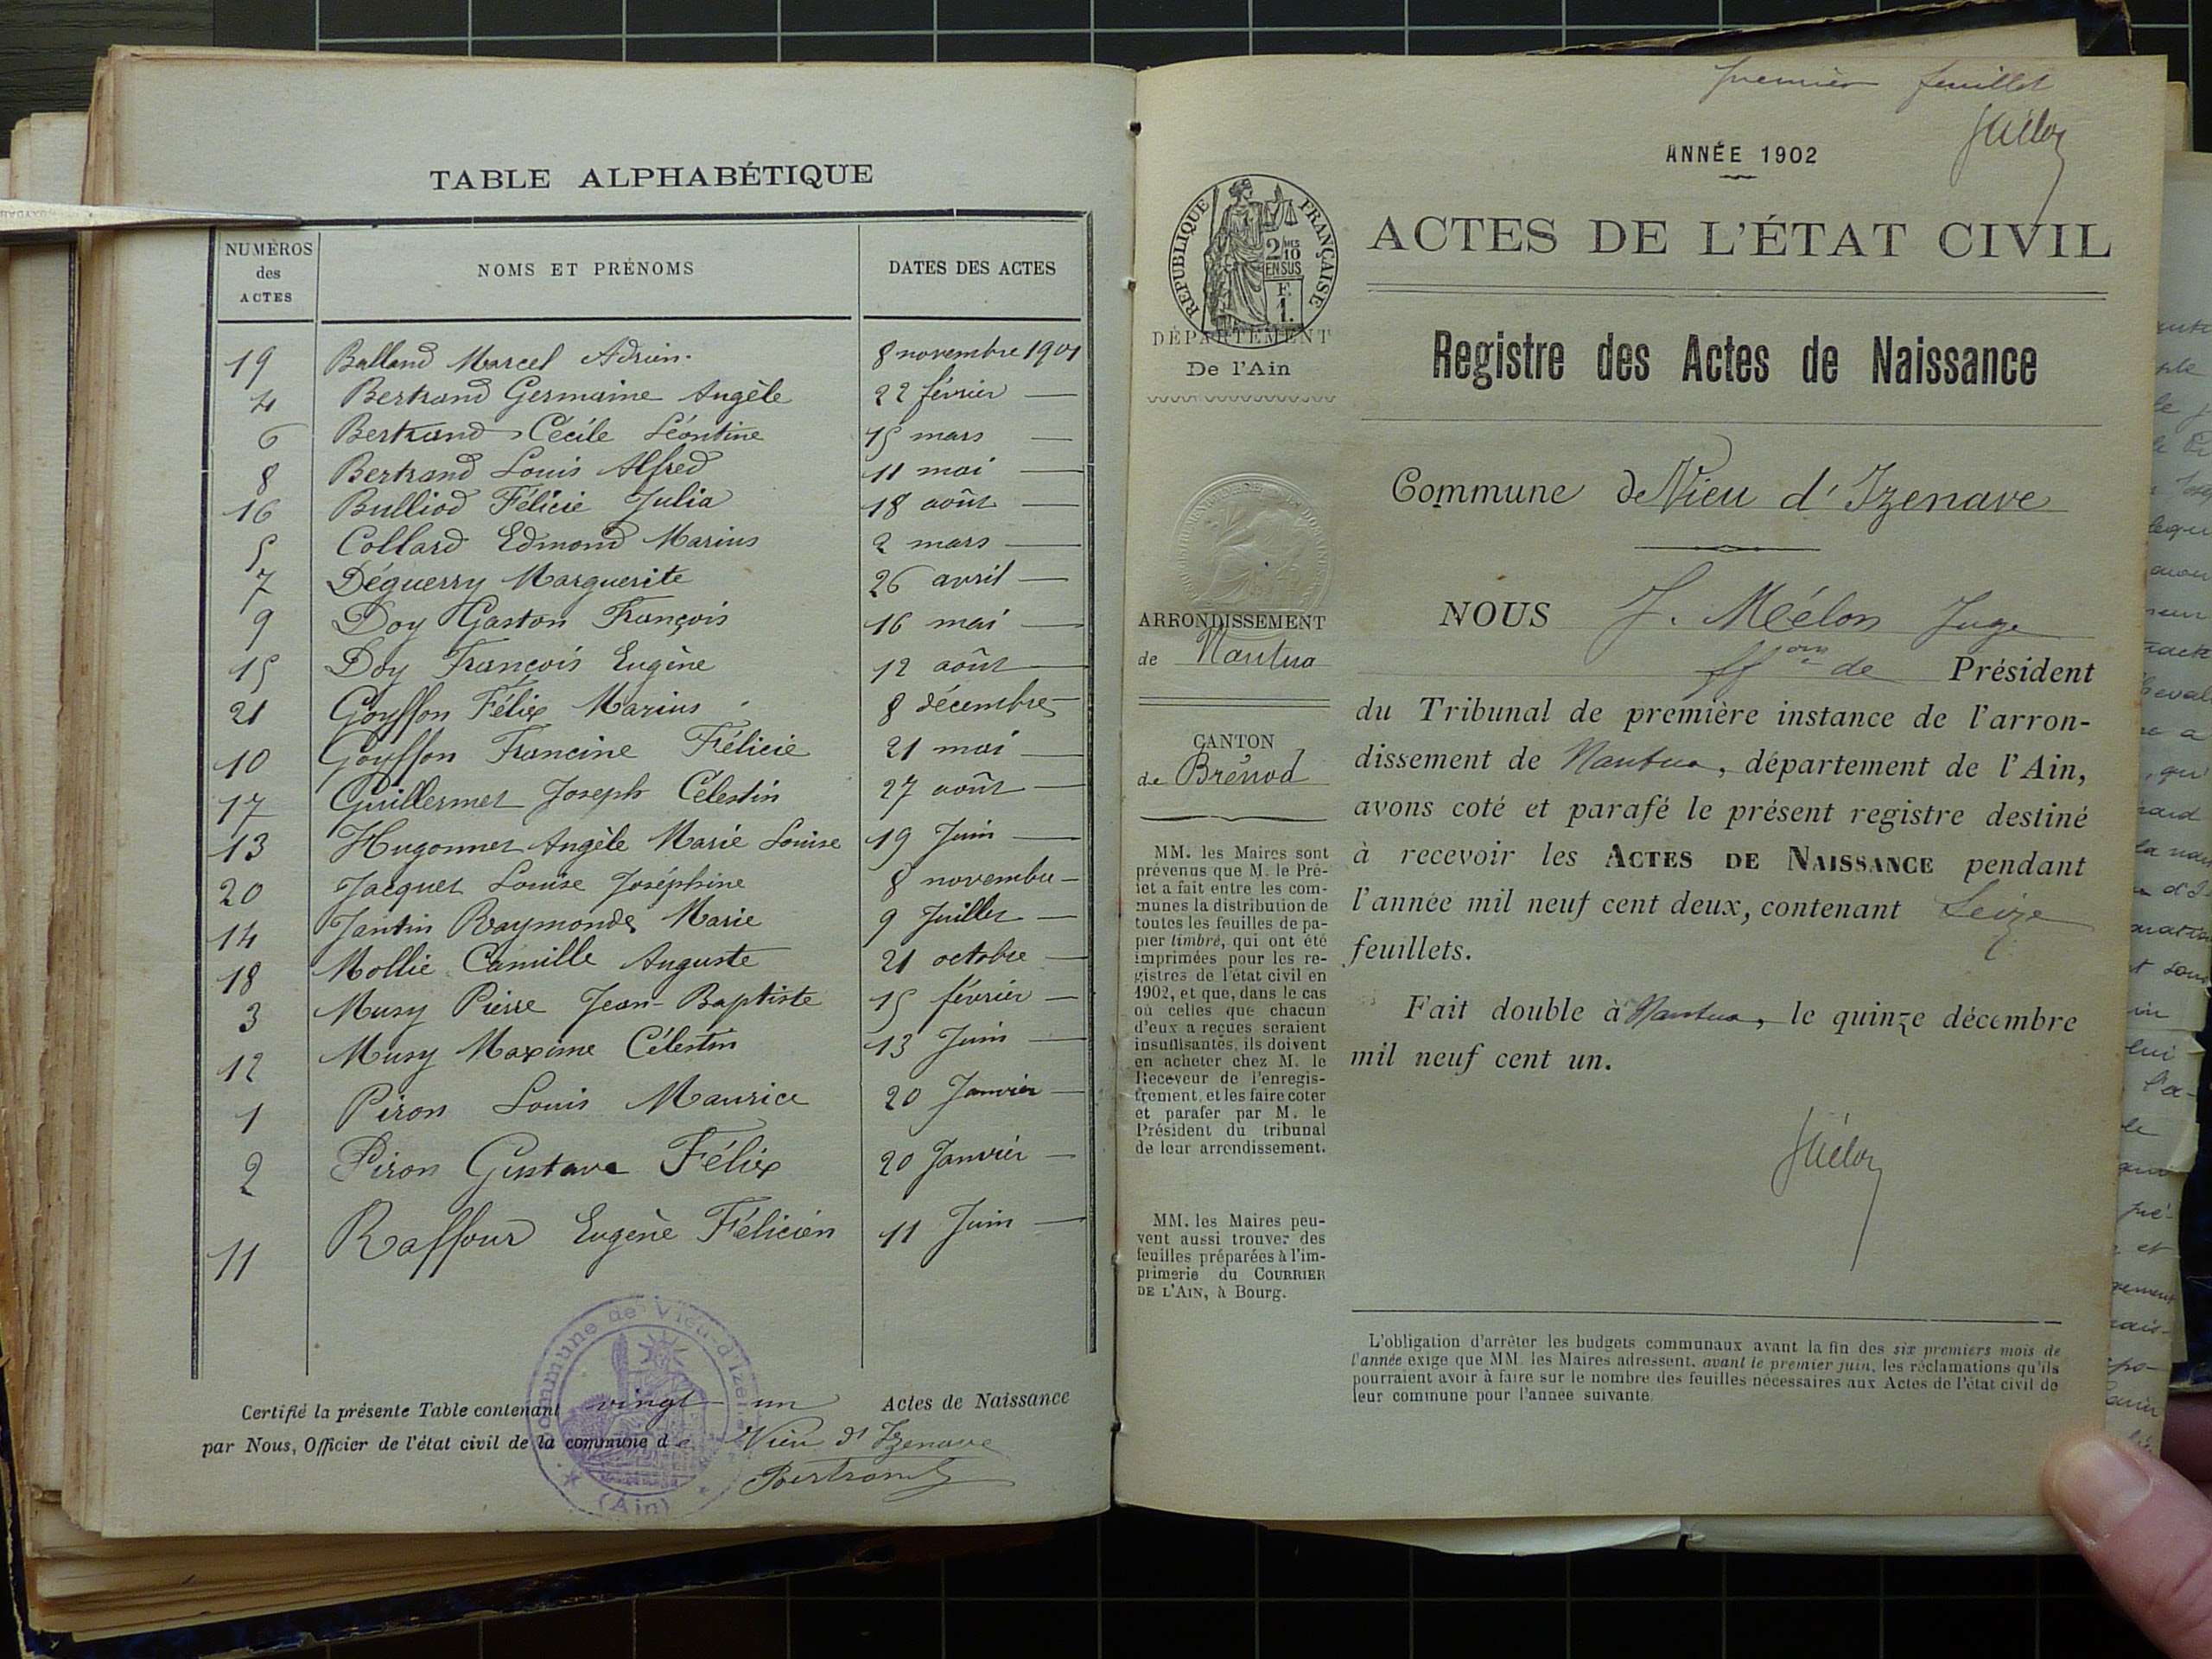 TABLE ALPHABÉTIQUE
NUMÉROS des ACTES
NOMS ET PRÉNOMS
DATES DES ACTES
19 Balland Marcel Adrien. 8 novembre 1901
4 Bertrand Germaine Angèle 22 février —
6 Bertrand Cécile Léontine 15 mars —
8 Bertrand Louis Alfred 11 mai —
16 Bulliod Félicie Julia 18 août —
5 Collard Edmond Marius 2 mars —
7 Déguerry Marguerite 26 avril —
9 Doy Gaston François 16 mai —
15 Doy François Eugène 12 août —
21 Goyffon Félix Marius 8 décembre —
10 Goyffon Francine Félicie 21 mai —
17 Guillermet Joseph Célestin 27 août —
13 Hugonnet Angèle Marie Louise 19 Juin —
20 Jacquet Louise Joséphine 8 novembre —
14 Jantin Raymonde Marie 9 Juillet —
18 Mollie Camille Auguste 21 octobre —
3 Musy Pierre Jean-Baptiste 15 février —
12 Musy Maxime Célestin 13 Juin —
1 Piron Louis Maurice 20 Janvier —
2 Piron Gustave Félix 20 Janvier —
11 Raffour Eugène Félicien 11 Juin —
Commune de Vieu-d'Izenave
(Ain)
Certifié la présente Table contenant vingt un Actes de Naissance
par Nous, Officier de l'état civil de la commune de Vieu d'Izenave
Bertrand
premier feuillet
JMélon
ANNÉE 1902
RÉPUBLIQUE FRANÇAISE
2/10 MES
EN SUS
F.
1.
ACTES DE L'ÉTAT CIVIL
DÉPARTEMENT
De l'Ain
Registre des Actes de Naissance
Commune de Vieu d'Izenave
ARRONDISSEMENT
de Nantua
CANTON
de Brénod
NOUS J. Mélon Juge
ffons de Président
du Tribunal de première instance de l'arron-
dissement de Nantua, département de l'Ain,
avons coté et parafé le présent registre destiné
à recevoir les ACTES DE NAISSANCE pendant
l'année mil neuf cent deux, contenant Seize
feuillets.
Fait double à Nantua, le quinze décembre
mil neuf cent un.
JMélon
MM. les Maires sont
prévenus que M. le Pré-
fet a fait entre les com-
munes la distribution de
toutes les feuilles de pa-
pier timbré, qui ont été
imprimées pour les re-
gistres de l'état civil en
1902, et que, dans le cas
où celles que chacun
d'eux a reçues seraient
insuffisantes, ils doivent
en acheter chez M. le
Receveur de l'enregis-
trement, et les faire coter
et parafer par M. le
Président du tribunal
de leur arrondissement.
MM. les Maires peu-
vent aussi trouver des
feuilles préparées à l'im-
primerie du COURRIER
DE L'AIN, à Bourg.
L'obligation d'arrêter les budgets communaux avant la fin des six premiers mois de
l'année exige que MM. les Maires adressent, avant le premier juin, les réclamations qu'ils
pourraient avoir à faire sur le nombre des feuilles nécessaires aux Actes de l'état civil de
leur commune pour l'année suivante.